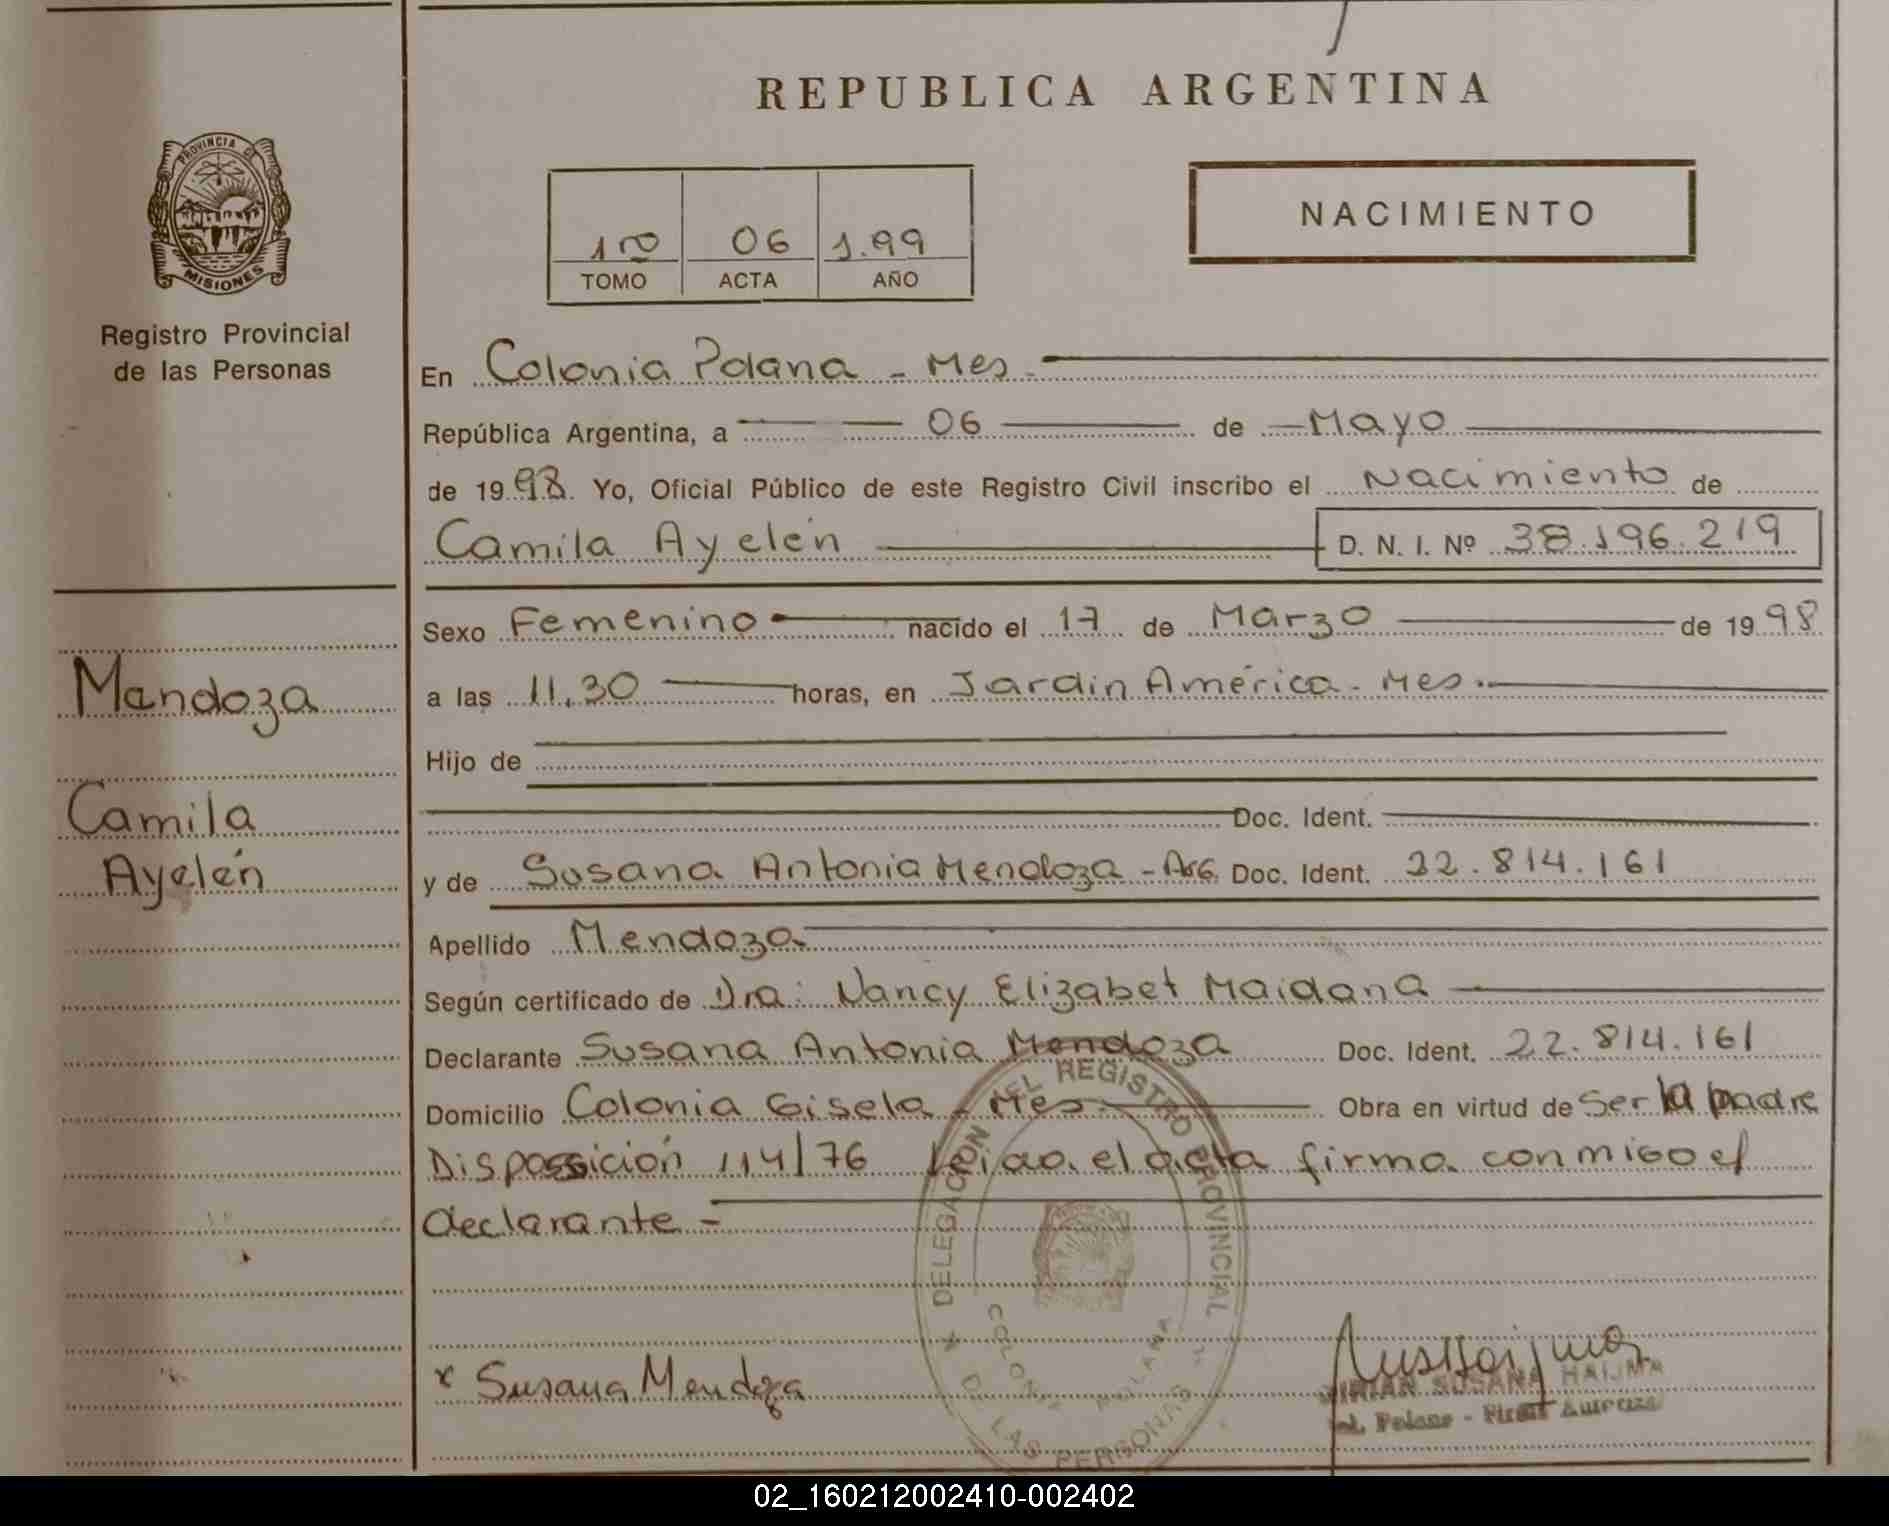 REPUBLICA ARGENTINA
PROVINCIA DE
MISIONES
Registro Provincial
de las Personas
06 1.99
TOMO ACTA AÑO
NACIMIENTO
En Colonia Polana - Mes.
República Argentina, a 06 de Mayo
de 1998. Yo, Oficial Público de este Registro Civil inscribo el Nacimiento de
Camila Ayelén D. N. I. Nº 38.196.219
Mendoza
Camila
Ayelén
Sexo Femenino nacido el 17 de Marzo de 1998
a las 11,30 horas, en Jardin América - Mes.
Hijo de
Doc. Ident.
y de Susana Antonia Mendoza - Arg. Doc. Ident. 22.814.161
Apellido Mendoza
Según certificado de Dra: Nancy Elizabet Maidana
Declarante Susana Antonia Mendoza Doc. Ident. 22.814.161
Domicilio Colonia Gisela - Mes Obra en virtud de Ser la madre
Disposición 114/76 Leida el acta firma conmigo el
declarante -
DELEGACION DEL REGISTRO PROVINCIAL
DE LAS PERSONAS
COLONIA POLANA
x Susana Mendoza
MIRIAN SUSANA HAIJMA
02_160212002410-002402